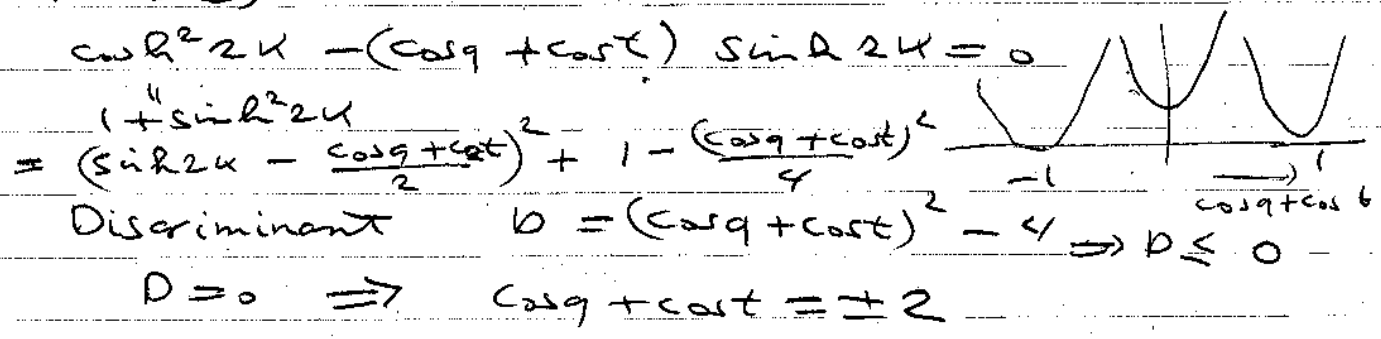 cosh² 2K − (cosq + cost) sinh 2K = 0
1 + sinh² 2K
= (sinh 2K − (cosq + cost)/2)² + 1 − (cosq + cost)²/4
−1 1
cosq + cos t
Discriminant D = (cosq + cost)² − 4 ⇒ D ≤ 0
D = 0 ⇒ cosq + cost = ±2